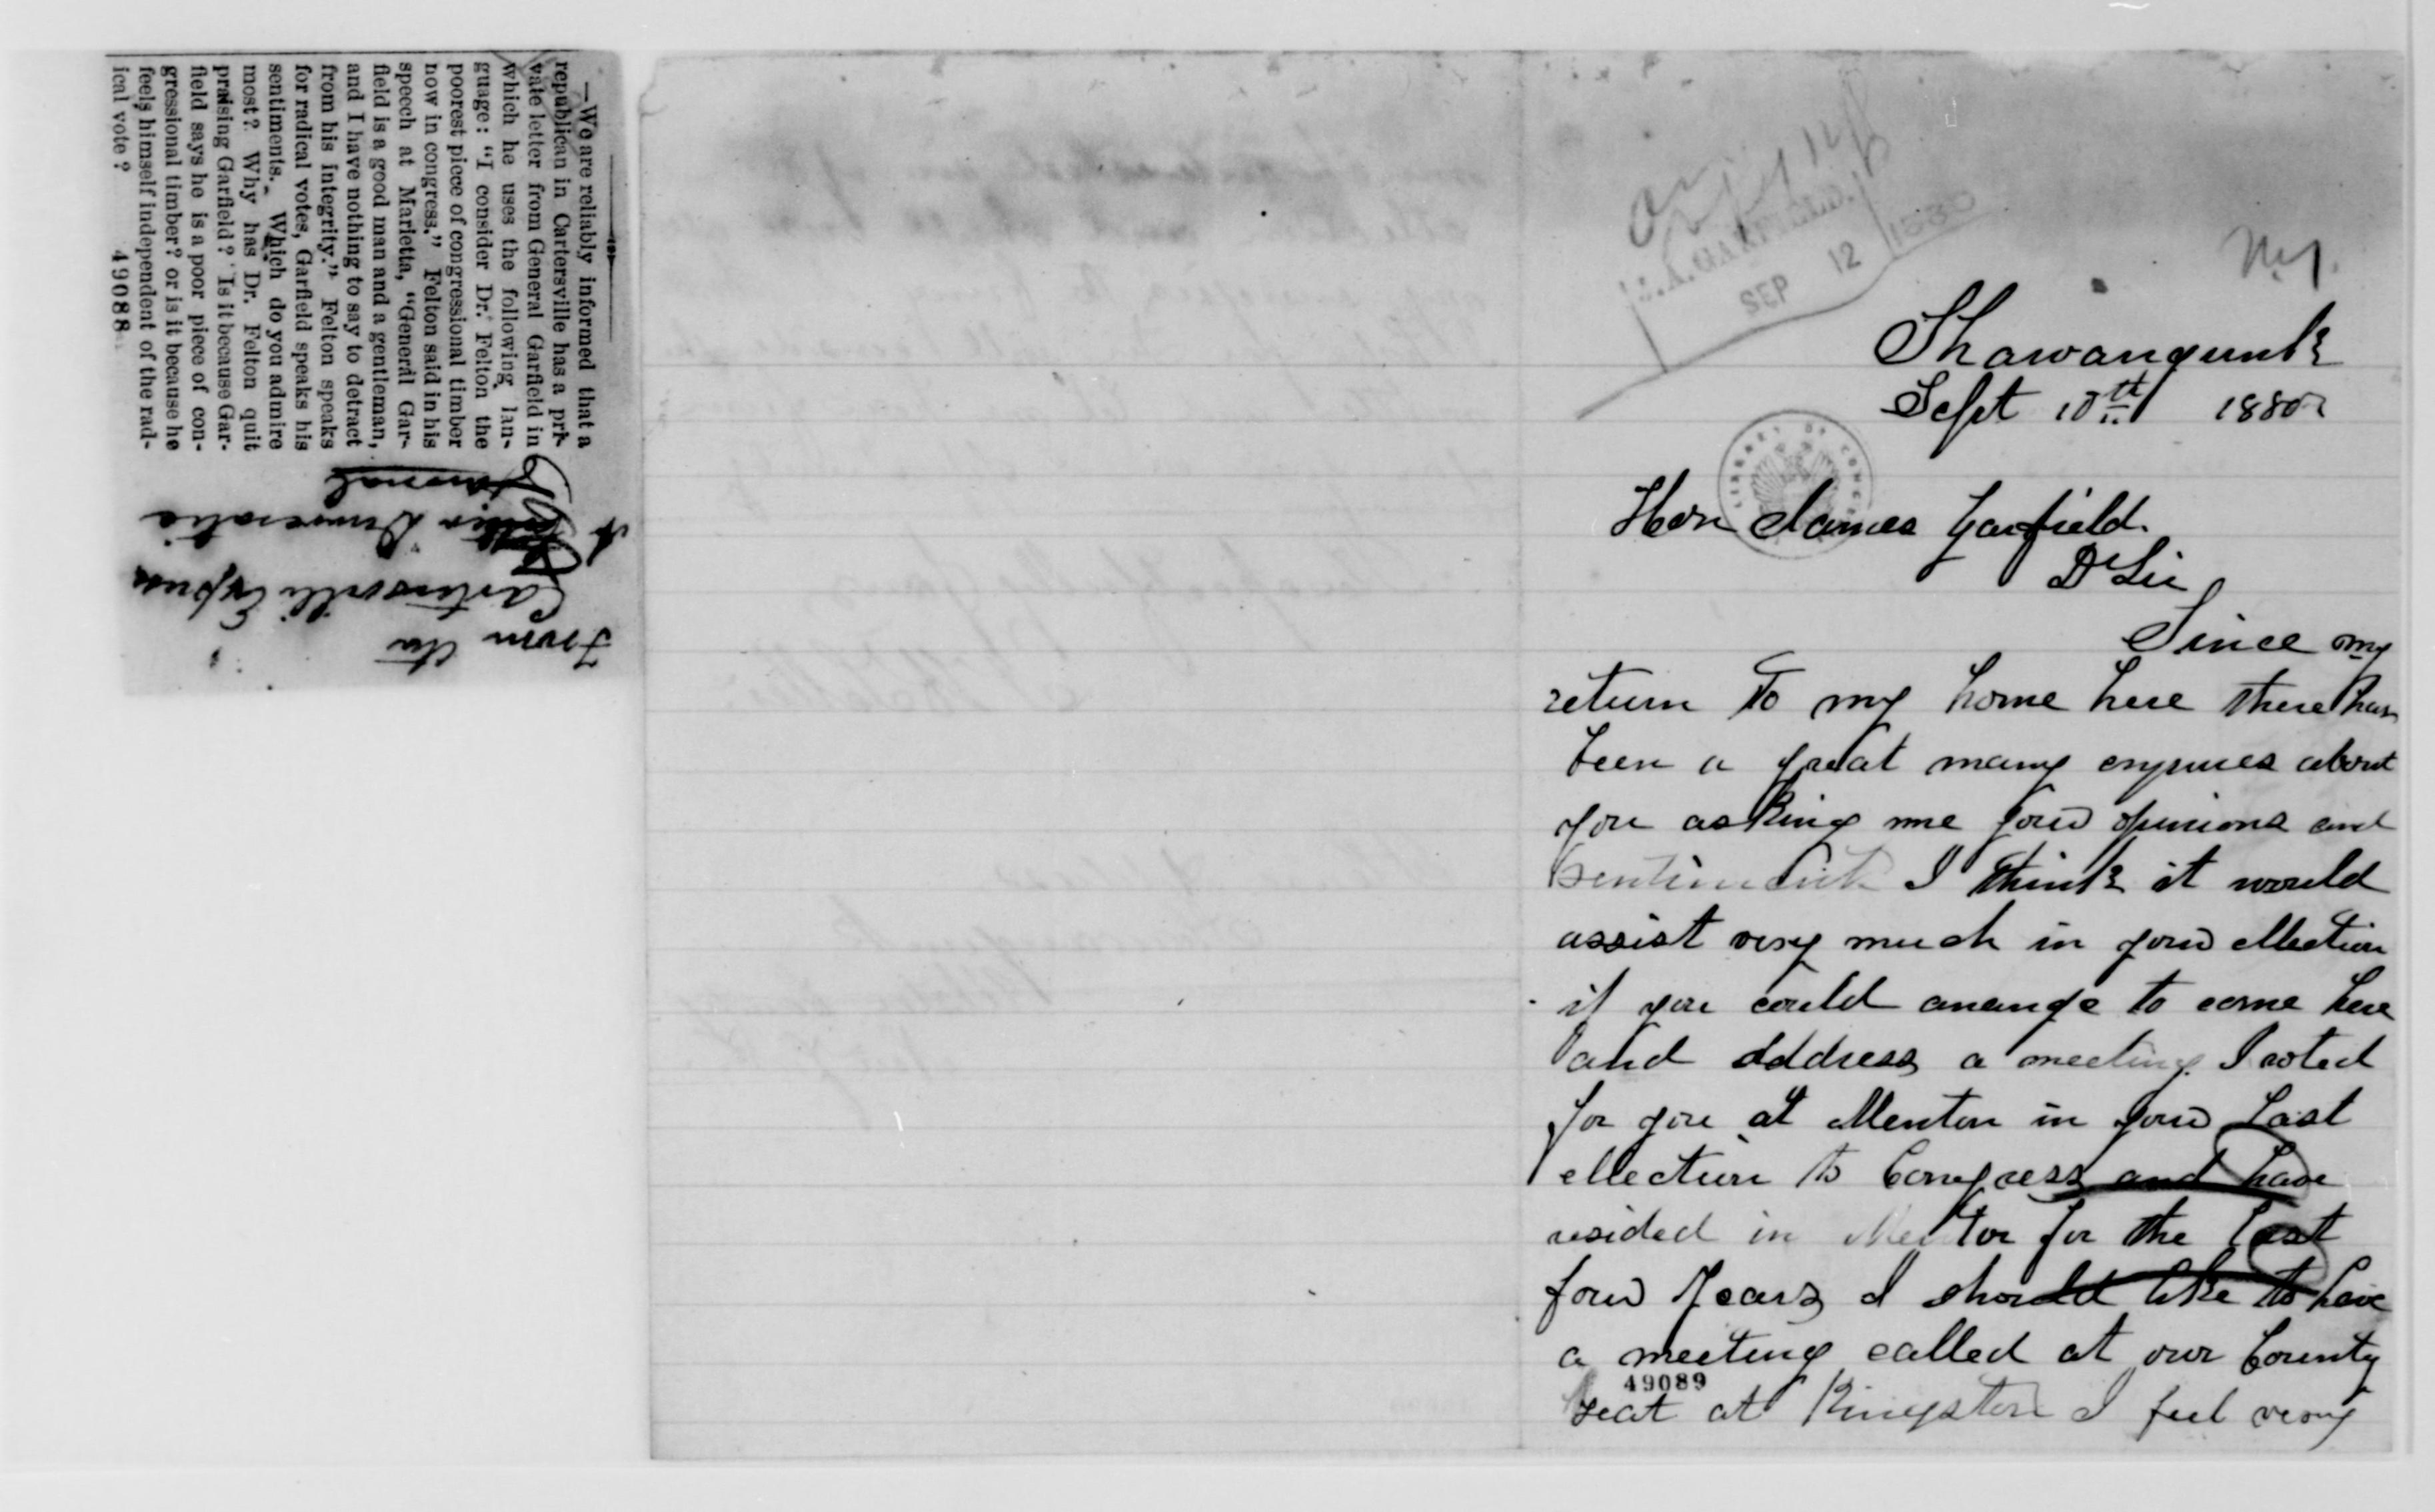 —We are reliably informed that a
republican in Cartersville has a pri-
vate letter from General Garfield in
which he uses the following lan-
guage: “I consider Dr. Felton the
poorest piece of congressional timber
now in congress.” Felton said in his
speech at Marietta, “General Gar-
field is a good man and a gentleman,
and I have nothing to say to detract
from his integrity.” Felton speaks
for radical votes, Garfield speaks his
sentiments. Which do you admire
most? Why has Dr. Felton quit
praising Garfield? Is it because Gar-
field says he is a poor piece of con-
gressional timber? or is it because he
feels himself independent of the rad-
ical vote?
49088
From the
Cartersville Express
A Democratic
Journal
J.A. GARFIELD.
SEP 12 1880
N.Y.
Shawangunk
Sept 10th 1880
LIBRARY OF CONGRESS
Hon James Garfield.
Dr Sir
Since my
return to my home here there has
been a great many enquires about
you asking me your opinions and
sentiments I think it would
assist very much in your ellection
if you could arrange to come here
and address a meeting I voted
for you at Mentor in your last
ellection to Congress and have
resided in Mentor for the last
four Years I should like to have
a meeting called at our County
49089
seat at Kingston I feel very